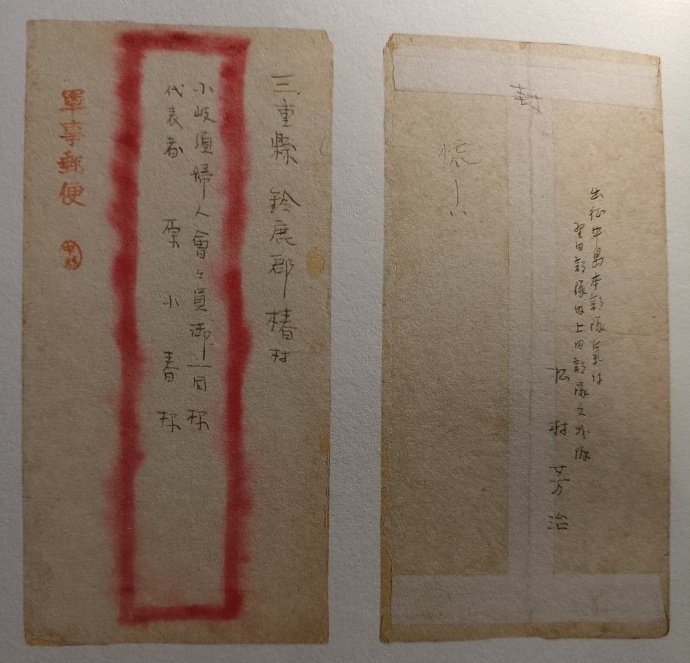 三重縣 鈴鹿郡 椿村
小岐須婦人會々員御一同様
代表者 原 小春 様
軍事郵便
封
出征中島本部隊気付
野田部隊内上田部隊
松村芳治